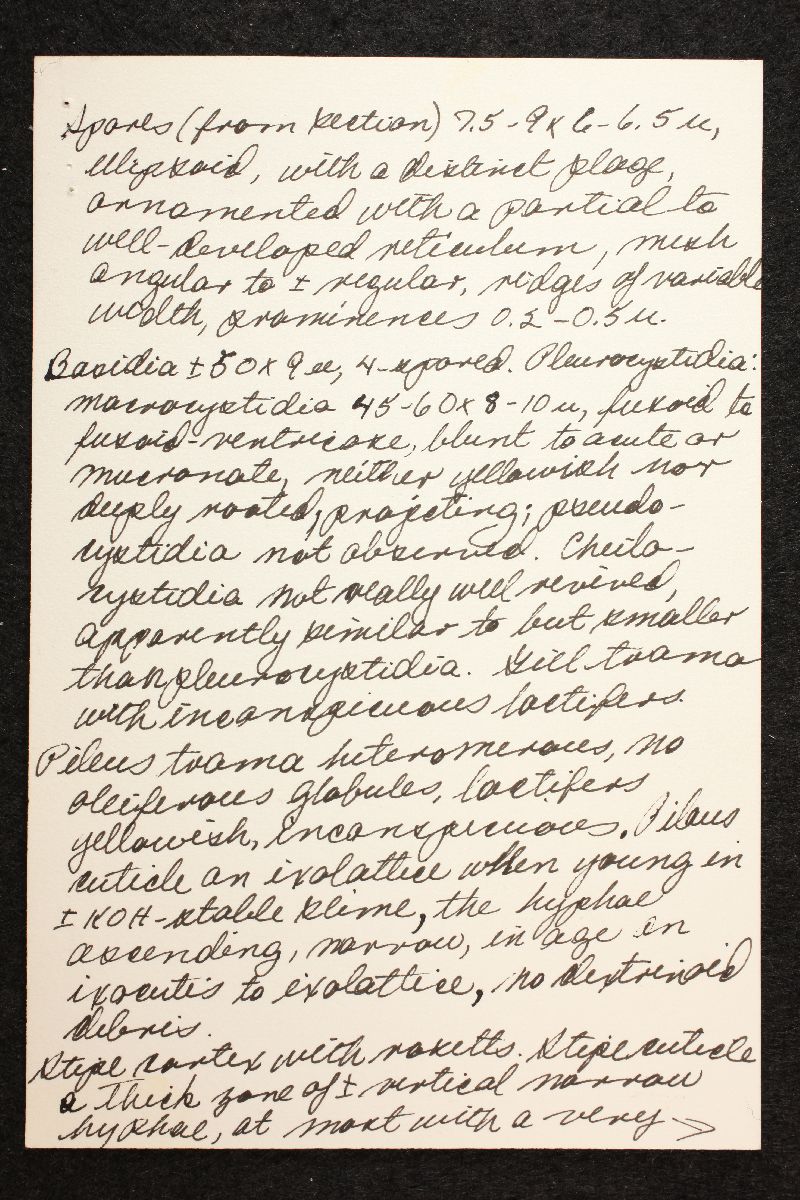 Spores (from section) 7.5-9 x 6-6.5 u,
ellipsoid, with a distinct plage,
ornamented with a partial to
well-developed reticulum, mesh
angular to ± regular, ridges of variable
width, prominences 0.2-0.5 u.
Basidia ± 50 x 9 u, 4-spored. Pleurocystidia:
macrocystidia 45-60 x 8-10 u, fusoid to
fusoid-ventricose, blunt to acute or
mucronate, neither yellowish nor
deeply rooted, projecting; pseudo-
cystidia not observed. Cheilo-
cystidia not really well revived,
apparently similar to but smaller
than pleurocystidia. Gill trama
with inconspicuous lactifers.
Pileus trama heteromerous, no
oleiferous globules, lactifers
yellowish, inconspicuous. Pileus
cuticle an ixolattice when young in
± KOH-stable slime, the hyphae
ascending, narrow, in age an
ixocutis to ixolattice, no dextrinoid
debris.
Stipe cortex with rosetts. Stipe cuticle
a thick zone of ± vertical narrow
hyphae, at most with a very →